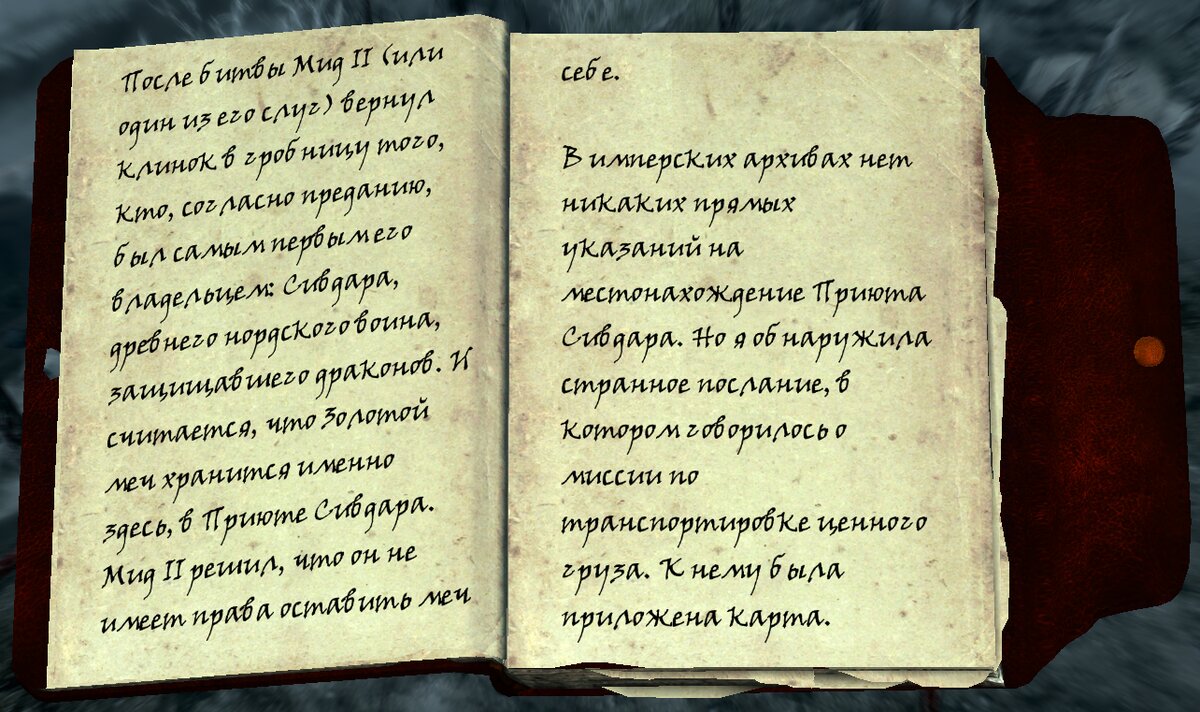 После битвы Мид II (или
один из его слуг) вернул
клинок в гробницу того,
кто, согласно преданию,
был самым первым его
владельцем: Сивдара,
древнего нордского воина,
защищавшего драконов. И
считается, что Золотой
меч хранится именно
здесь, в Приюте Сивдара.
Мид II решил, что он не
имеет права оставить меч
себе.
В имперских архивах нет
никаких прямых
указаний на
местонахождение Приюта
Сивдара. Но я обнаружила
странное послание, в
котором говорилось о
миссии по
транспортировке ценного
груза. К нему была
приложена карта.